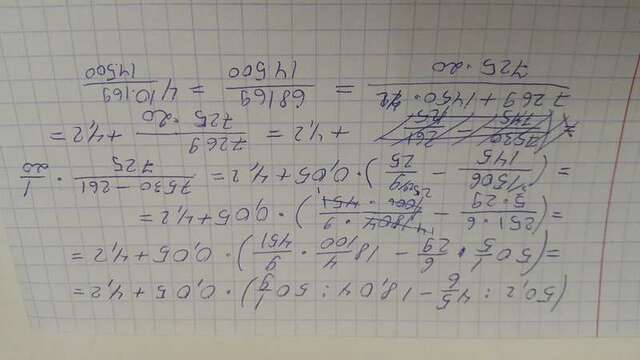 (50,2 : 4 5/6 - 18,04 : 50 1/9) · 0,05 + 4,2 =
= (50 1/5 · 6/29 - 18 4/100 · 9/451) · 0,05 + 4,2 =
= (251·6/5·29 - 1804·9/100·451) · 0,05 + 4,2 =
= (1506/145 - 9/25) · 0,05 + 4,2 = 7530 - 261/725 · 1/20
= 7530/745 - 261/125 + 4,2 = 7269/725·20 + 4,2 =
7269 + 1450·42/725·20 = 68169/14500 = 4 10.169/14.500